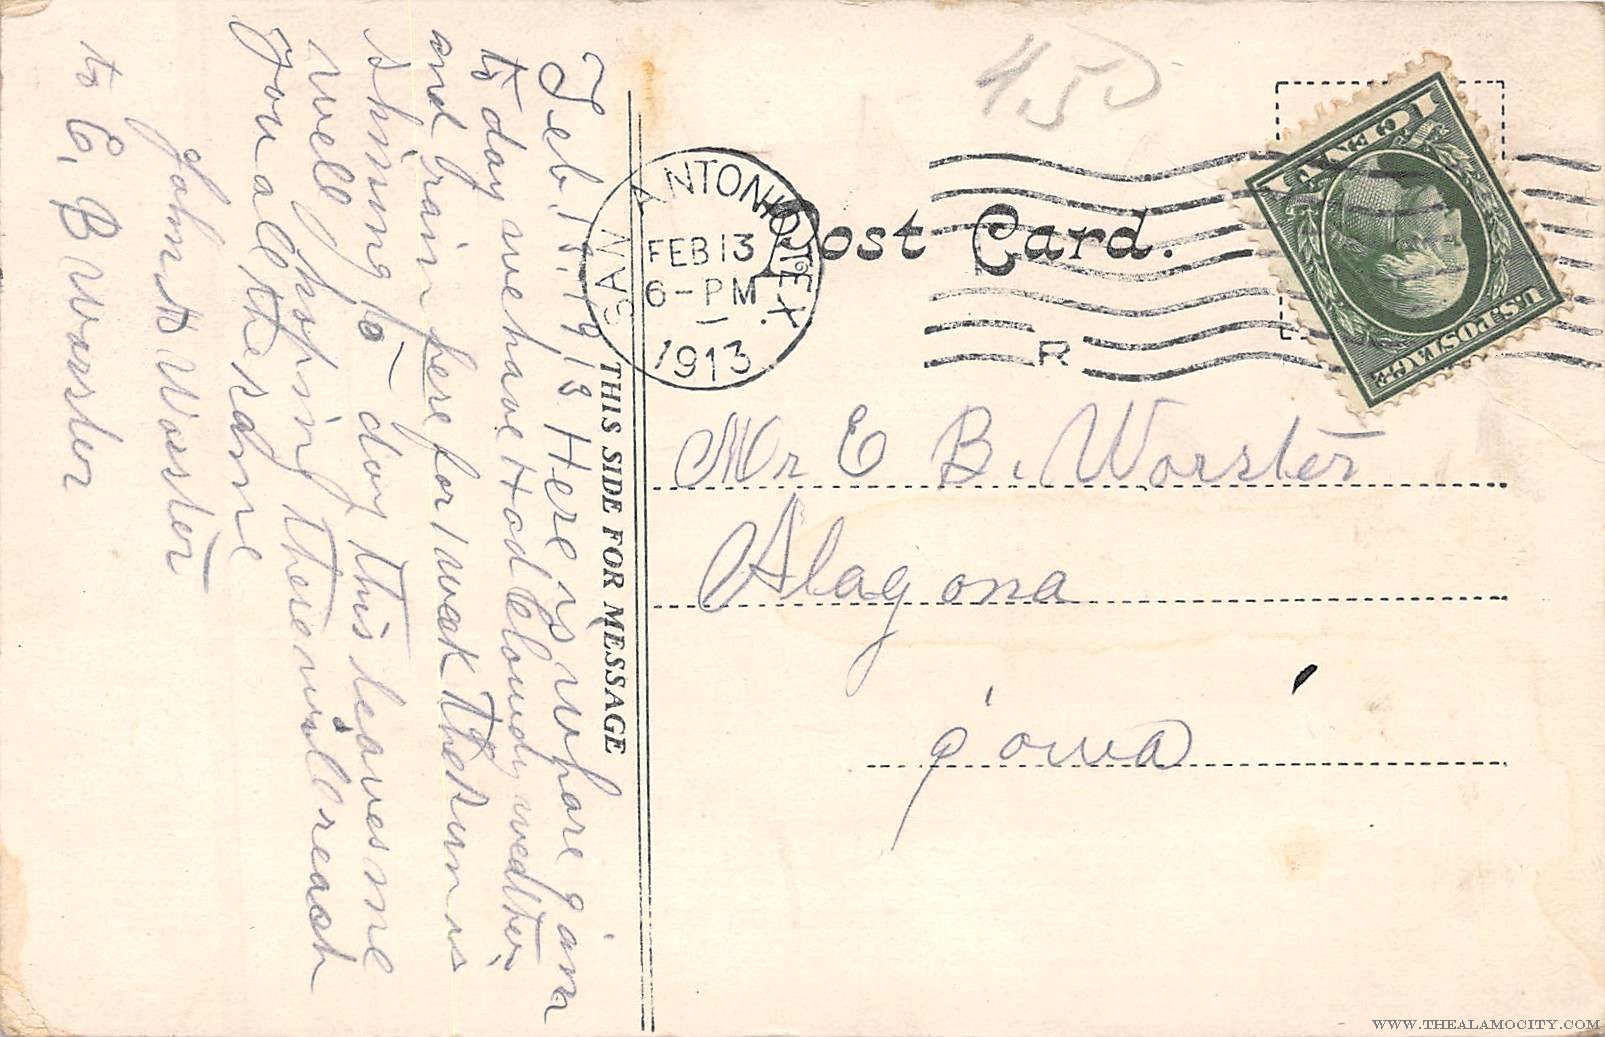 Feb. 13. 1913 Here is whare i am
to day we have Had Cloudy weather
and Grain here for 1 weak The sun is
shining to-day this leaves me
well hoping the will reach
you all the same
John Worster
to E. B Worster
THIS SIDE FOR MESSAGE
SAN ANTONIO, TEX.
FEB 13
6-PM
1913
R
Post Card.
450
U.S. POSTAGE
1 CENT 1
Mr E B. Worster
Alagona
iowa
WWW.THEALAMOCITY.COM